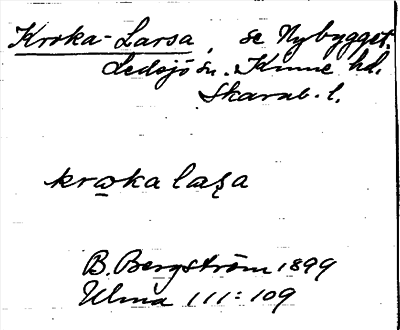 Kroka-Larsa, se Nybygget.
Ledsjö sn. Kinne hd.
Skarab. l.
B. Bergström 1899
Ulma 111:109